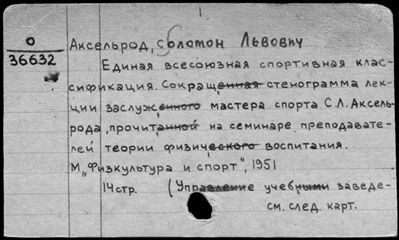 1
О
36632
Аксельрод, Соломон Львович
Единая всесоюзная спортивная клас-
сификация. Сокращенная стенограмма лек-
ции заслуженного мастера спорта С.Л. Аксель-
рода, прочитанной на семинаре преподавате-
лей теории физического воспитания.
М, „Физкультура и спорт", 1951
14стр. (Управление учебными заведе-
см. след. карт.